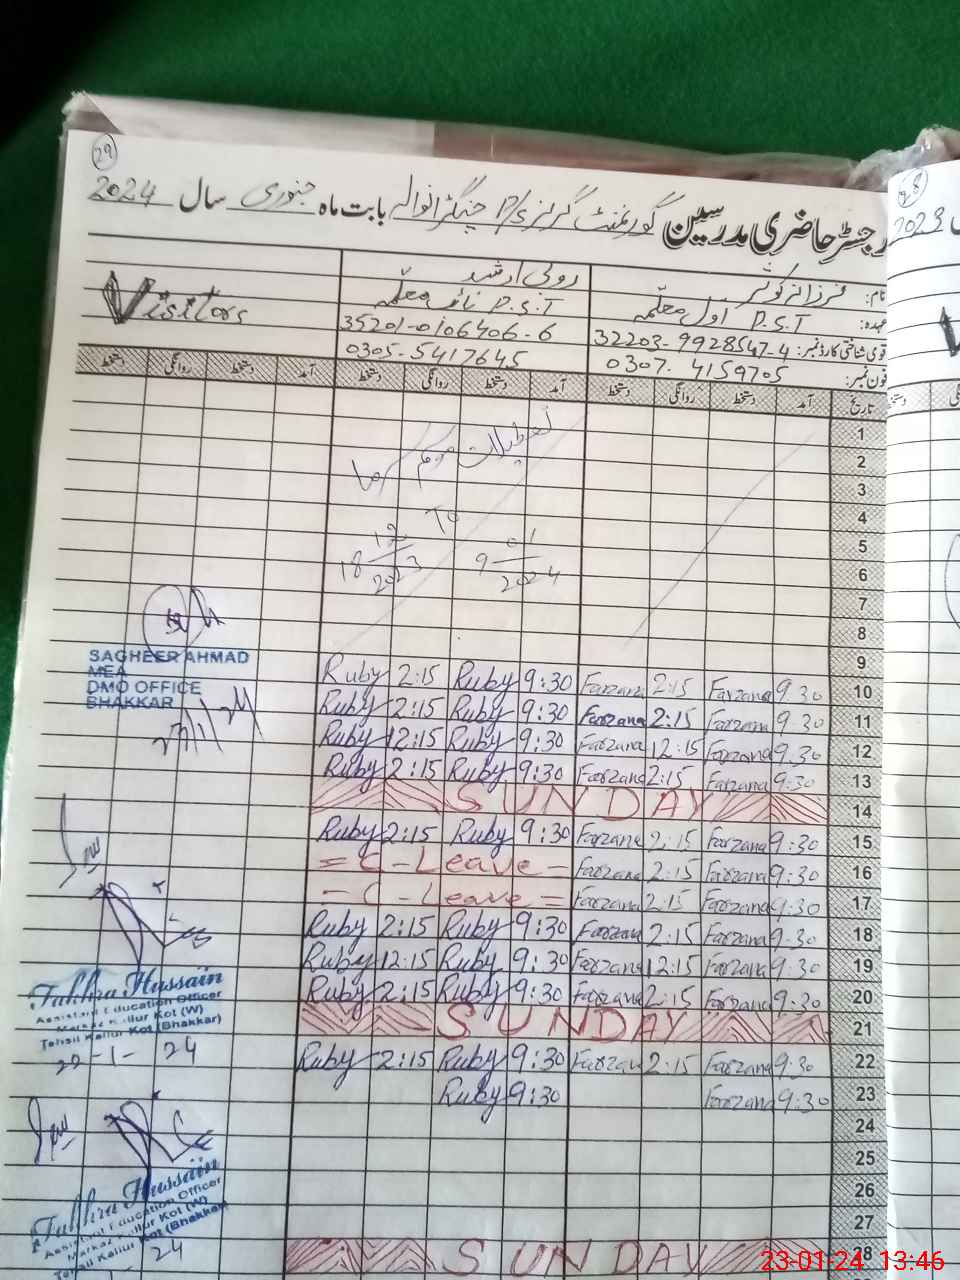 29
رجسٹر حاضری مدرسین گورنمنٹ گرلز P/S بابت ماہ جنوری سال 2024
نام: فرزانہ کوثر روبی ارشد Visitors
عہدہ: P.S.T اول معلمہ P.S.T نائب معلمہ
قومی شناختی کارڈ نمبر: 32203-9928547-4 35201-0106406-6
فون نمبر: 0307-4159705 0305-5417645
تاریخ آمد دستخط روانگی دستخط آمد دستخط روانگی دستخط آمد دستخط روانگی دستخط
1
2 تعطیلات موسم سرما
3
4 To
5 18 12 2023 9 01 2024
6
7
8
9
Ruby 2:15 Ruby 9:30 Farzana 2:15 Farzana 9:30 10
Ruby 2:15 Ruby 9:30 Farzana 2:15 Farzana 9:30 11
Ruby 12:15 Ruby 9:30 Farzana 12:15 Farzana 9:30 12
Ruby 2:15 Ruby 9:30 Farzana 2:15 Farzana 9:30 13
SUNDAY 14
Ruby 2:15 Ruby 9:30 Farzana 2:15 Farzana 9:30 15
= C-Leave = Farzana 2:15 Farzana 9:30 16
- C-Leave = Farzana 2:15 Farzana 9:30 17
Ruby 2:15 Ruby 9:30 Farzana 2:15 Farzana 9:30 18
Ruby 12:15 Ruby 9:30 Farzana 12:15 Farzana 9:30 19
Ruby 2:15 Ruby 9:30 Farzana 2:15 Farzana 9:30 20
SUNDAY 21
Ruby 2:15 Ruby 9:30 Farzana 2:15 Farzana 9:30 22
Ruby 9:30 Farzana 9:30 23
24
25
26
27
SUNDAY 28
SAGHEER AHMAD
MEA
DMO OFFICE
BHAKKAR
Fakhra Hussain
Assistant Education Officer
Markaz Kallur Kot (W)
Tehsil Kallur Kot (Bhakkar)
22-1-24
Fakhra Hussain
Assistant Education Officer
Markaz Kallur Kot (W)
Tehsil Kallur Kot (Bhakkar)
24
2023
23-01-24 13:46